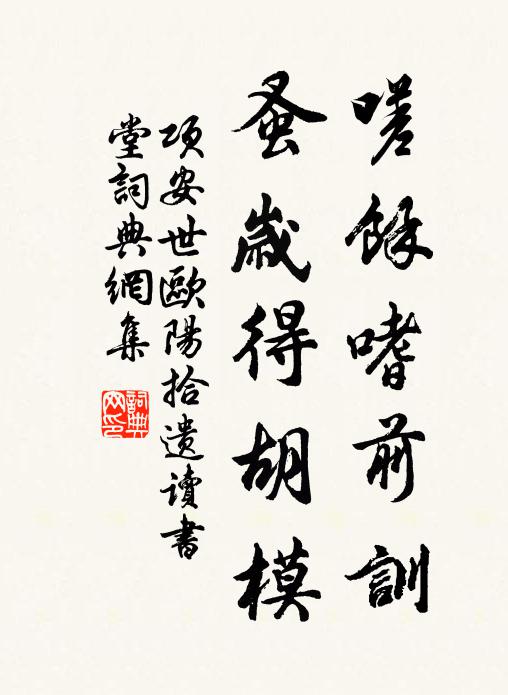 嗟餘嗜前訓
蚤歲得胡模
項安世歐陽拾遺讀書
堂詞典網集
詞典网印